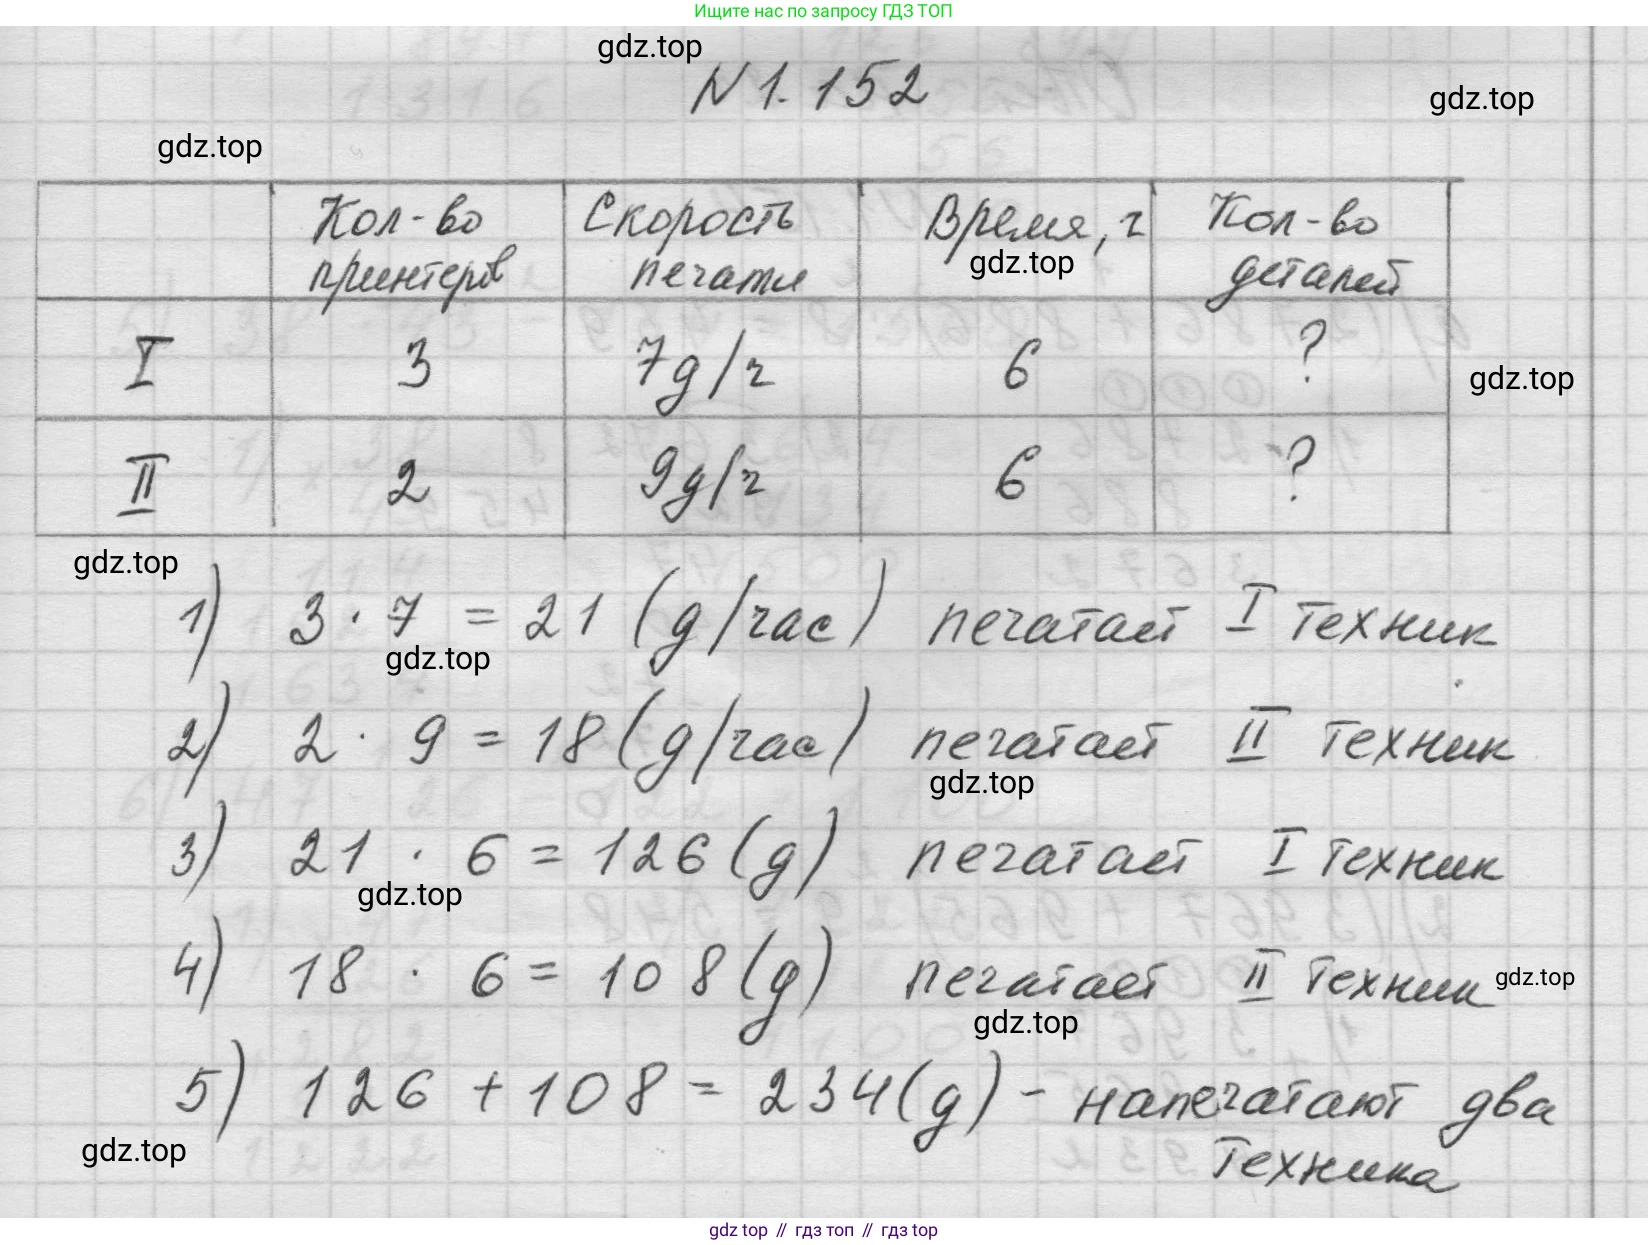 Ищите нас по запросу ГДЗ ТОП
gdz.top
N 1.152
gdz.top
gdz.top
Кол-во принтеров Скорость печати Время, ч Кол-во деталей
gdz.top
I 3 7д/ч 6 ?
gdz.top
II 2 9д/ч 6 ?
gdz.top
1) 3 · 7 = 21 (д/час) печатает I техник
gdz.top
2) 2 · 9 = 18 (д/час) печатает II техник
gdz.top
3) 21 · 6 = 126 (д) печатает I техник
gdz.top
4) 18 · 6 = 108 (д) печатает II техник
gdz.top
gdz.top
5) 126 + 108 = 234 (д) - напечатают два
техника
gdz.top
gdz top // гдз топ // gdz top